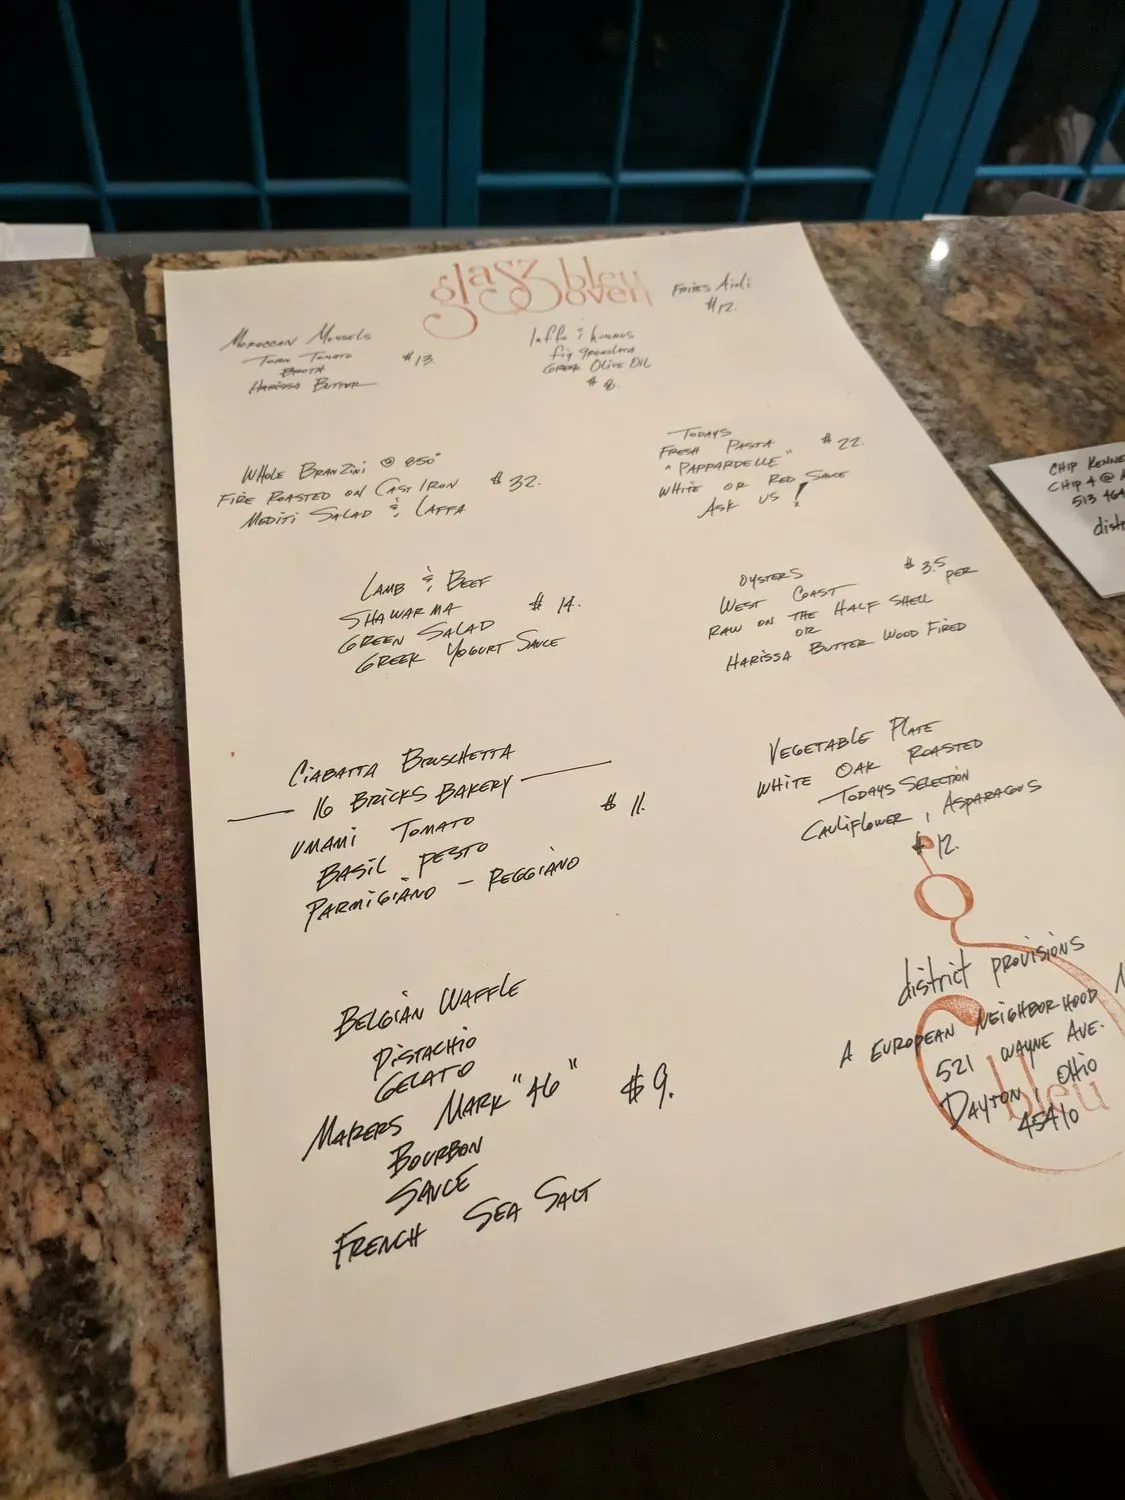 glasz bleu
oven
Fries Aioli
$12.
Moroccan Mussels
Torn Tomato
Broth
Harissa Butter
$13.
laffa & hummus
fig gremolata
Greek Olive Oil
$8.
Whole Branzini @ 850°
Fire Roasted on Cast Iron
Mediti Salad & Laffa
$32.
Todays
Fresh Pasta
"Pappardelle"
White or Red Sauce
Ask us!
$22.
Lamb & Beef
Shawarma
Green Salad
Greek Yogurt Sauce
$14.
Oysters
West Coast
Raw on the Half Shell
or
Harissa Butter Wood Fired
$3.5 per
Ciabatta Bruschetta
16 Bricks Bakery
Umami Tomato
Basil Pesto
Parmigiano - Reggiano
$11.
Vegetable Plate
White Oak Roasted
Todays Selection
Cauliflower, Asparagus
$12.
Belgian Waffle
Pistachio
Gelato
Makers Mark "46"
Bourbon
Sauce
French Sea Salt
$9.
district provisions
A European Neighborhood
521 Wayne Ave.
Dayton, Ohio
45410
bleu
Chip
Chip 4 @
513